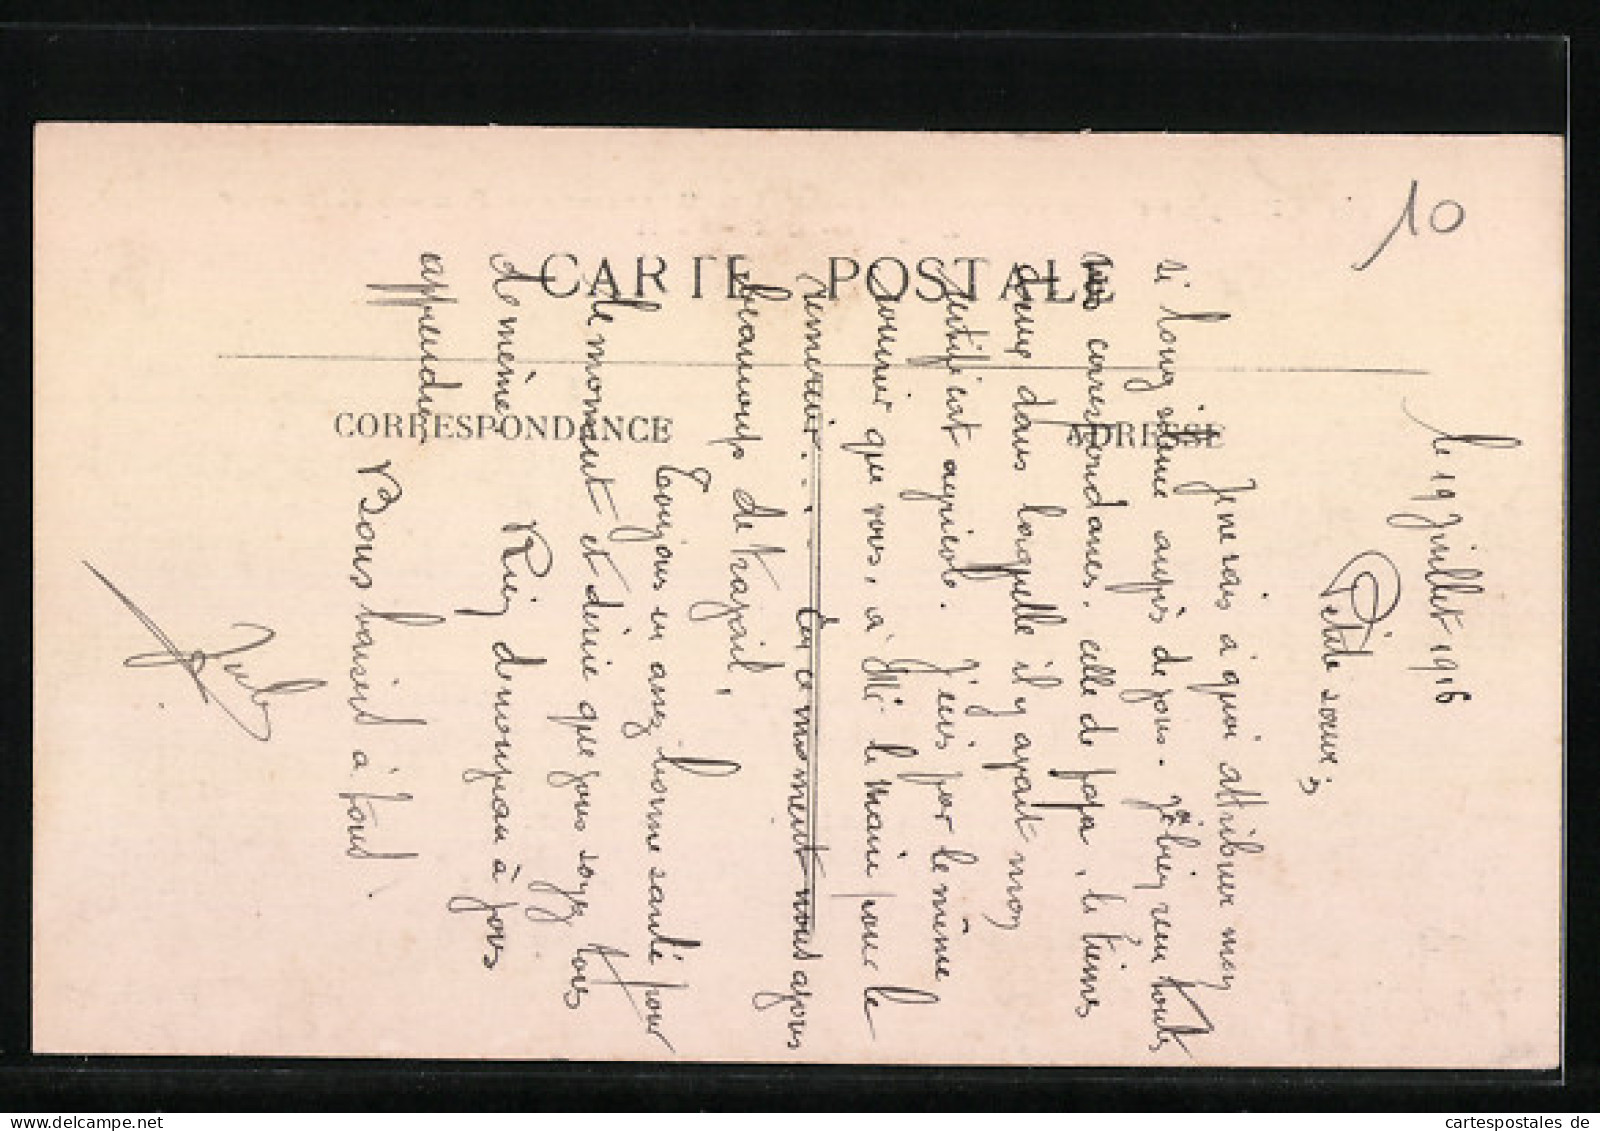 10
CARTE POSTALE
CORRESPONDANCE
ADRESSE
le 19 Juillet 1916
Petite soeur ;
Je ne sais à quoi attribuer mon
si long silence auprès de vous. J'ai bien reçu toutes
vos correspondances. celle de papa, le tiennes
dans laquelle il y ayant mon
certificat agricole. J'écris par le même
courrier que vous, à Mr le Maire pour le
remercier.... En ce moment nous avons
beaucoup de travail.
Toujours en assez bonne santé pour
le moment et désire que vous soyez tous
de même. Rien de nouveau à vous
apprendre.
Bons baisers à tous.